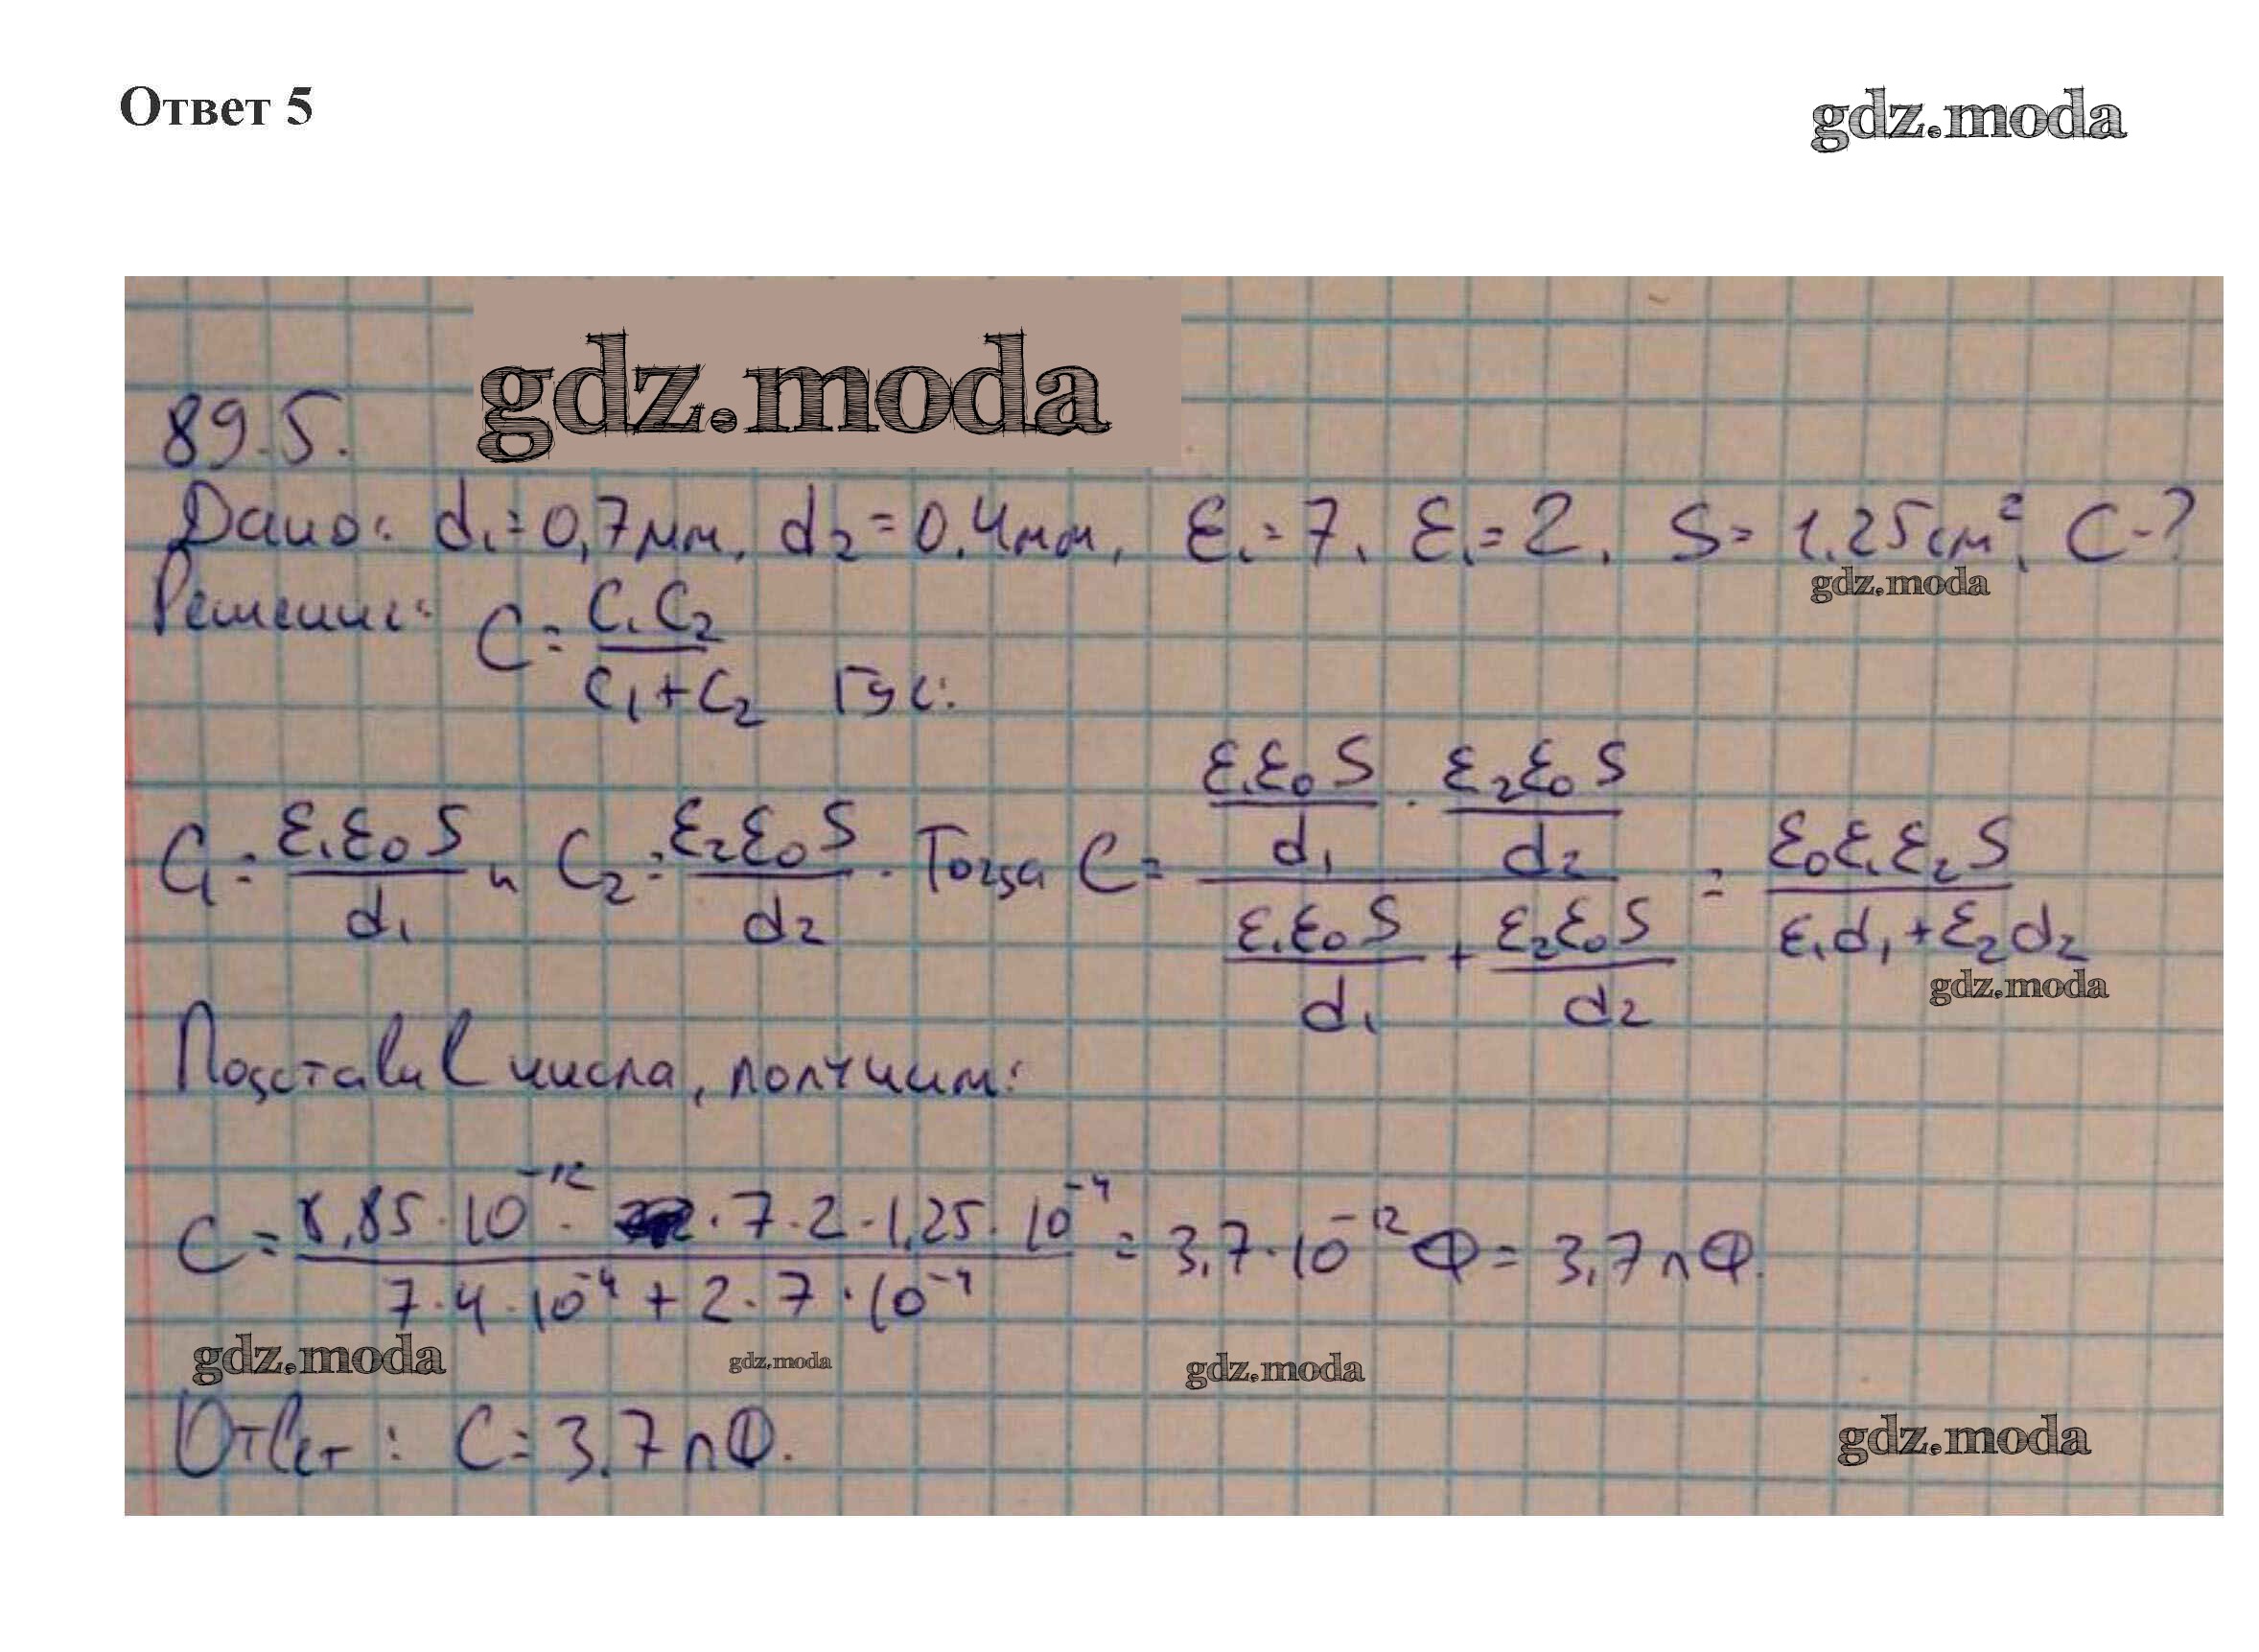 Ответ 5
gdz.moda
gdz.moda
89.5.
Дано: d₁=0,7мм, d₂=0,4мм, ε₁=7, ε₁=2, S=1,25см², C-?
gdz.moda
Решение: C = C₁C₂ / C₁+C₂ где:
C₁ = ε₁ε₀S / d₁ и C₂ = ε₂ε₀S / d₂. Тогда C = (ε₁ε₀S / d₁ · ε₂ε₀S / d₂) / (ε₁ε₀S / d₁ + ε₂ε₀S / d₂) = ε₀ε₁ε₂S / ε₁d₁+ε₂d₂
gdz.moda
Подставив числа, получим:
C = 8,85·10⁻¹² · · 7·2·1,25·10⁻⁴ / 7·4·10⁻⁴ + 2·7·10⁻⁴ = 3,7·10⁻¹² Ф = 3,7пФ.
gdz.moda gdz.moda gdz.moda
Ответ: C = 3,7пФ.
gdz.moda